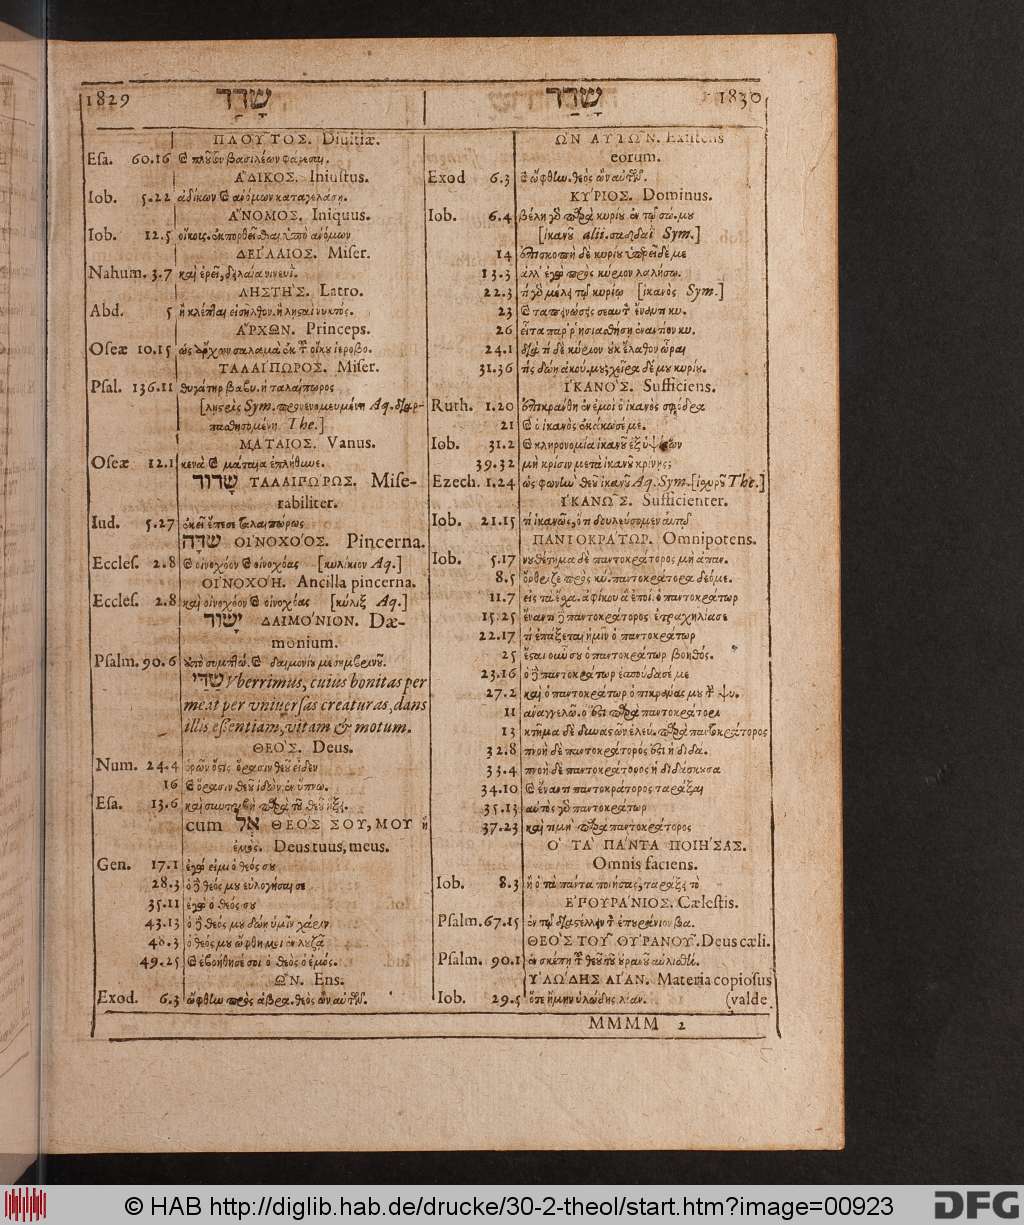 1829 שָׁדַד
ΠΛΟΥΤΟΣ. Diuitiæ.
Esa. 60.16
ἌΔΙΚΟΣ. Iniustus.
Iob. 5.22 ἀδίκων καὶ ἀνόμων καταγελάσῃ.
ἌΝΟΜΟΣ. Iniquus.
Iob. 12.5
ΔΕΊΛΑΙΟΣ. Miser.
Nahum. 3.7 καὶ ἐρεῖ, δειλαία νινευὶ.
ΛΗΣΤΗΣ. Latro.
Abd. 5 ἢ κλέπται εἰσῆλθον. ἢ λῃσταὶ νυκτὸς.
ἌΡΧΩΝ. Princeps.
Oseæ 10.15
ΤΑΛΑΙΠΩΡΟΣ. Miser.
Psal. 136.11 θυγάτηρ βαβυ. ἡ ταλαίπωρος
Sym. Aq.
The.]
ΜΑΤΑΙΟΣ. Vanus.
Oseæ 12.1 κενὰ καὶ μάταια
שָׁדוּד ΤΑΛΑΙΠΩΡΩΣ. Mise-
rabiliter.
Iud. 5.27 ἐκεῖ ἔπεσε ταλαιπώρως
שִׁדָּה ΟΙΝΟΧΟΌΣ. Pincerna.
Eccles. 2.8 καὶ οἰνοχόον καὶ οἰνοχόας [κυλίκιον Aq.]
ΟΙΝΟΧΟΉ. Ancilla pincerna.
Eccles. 2.8 καὶ οἰνοχόον καὶ οἰνοχόας [κύλιξ Aq.]
יָשׁוּד ΔΑΙΜΌΝΙΟΝ. Dæ-
monium.
Psalm. 90.6 δαιμονίου μεσημβρινοῦ.
שַׁדַּי Vberrimus, cuius bonitas per
meat per vniuersas creaturas, dans
illis essentiam, vitam & motum.
ΘΕΌΣ. Deus.
Num. 24.4 ὅστις ὅρασιν θεοῦ εἶδεν
16 καὶ ὅρασιν θεοῦ ἰδὼν ἐν ὕπνῳ.
Esa. 13.6
cum אֵל ΘΕΌΣ ΣΟΥ, ΜΟΥ ἢ
ἐμός. Deus tuus, meus.
Gen. 17.1 ἐγώ εἰμι ὁ θεός σου
28.3 ὁ δὲ θεός μου εὐλογήσαι σε
35.11 ἐγὼ ὁ θεός σου
43.13 ὁ δὲ θεός μου δῴη ὑμῖν χάριν
48.3 ὁ θεός μου ὤφθη μοι ἐν λουζᾶ
49.25 καὶ ἐβοήθησέ σοι ὁ θεὸς ὁ ἐμός.
ὬΝ. Ens.
Exod. 6.3 ὤφθην πρὸς ἀβρα. θεὸς ὢν αὐτῶν.
שָׁדַד 1830
ὪΝ ΑΥΤΩΝ. Existens
eorum.
Exod 6.3 καὶ ὤφθην. θεὸς ὢν αὐτῶν.
ΚΎΡΙΟΣ. Dominus.
Iob. 6.4 βέλη γὰρ παρὰ κυρίου ἐν τῷ σώ. μου
[ἱκανοῦ alii. Sym.]
14 ἐπισκοπὴ δὲ κυρίου ὑπερεῖδέ με
13.3 ἀλλ' ἐγὼ πρὸς κύριον λαλήσω.
22.3 τί γὰρ μέλει τῷ κυρίῳ [ἱκανὸς Sym.]
23
26
24.1 διὰ τί δὲ κύριον οὐκ ἔλαθον ὧραι
31.36
ἹΚΑΝΌΣ. Sufficiens.
Ruth. 1.20 ἐπικράνθη ἐν ἐμοὶ ὁ ἱκανὸς σφόδρα
21 καὶ ὁ ἱκανὸς ἐκάκωσέ με.
Iob. 31.2 καὶ κληρονομία ἱκανοῦ ἐξ ὑψίστων
39.32 μὴ κρίσιν μετὰ ἱκανοῦ κρινεῖς;
Ezech. 1.24 ὡς φωνὴν θεοῦ ἱκανοῦ Aq. Sym. [ἰσχυροῦ The.]
ἹΚΑΝΩΣ. Sufficienter.
Iob. 21.15 τί ἱκανῶς, ὅτι δουλεύσομεν αὐτῷ
ΠΑΝΤΟΚΡΑΤΩΡ. Omnipotens.
Iob. 5.17 νουθέτημα δὲ παντοκράτορος μὴ ἀπαν.
8.5 ὄρθριζε πρὸς κύ. παντοκράτορα δεόμε.
11.7
15.25 ἔναντι δὲ παντοκράτορος ἐτραχηλίασε
22.17 τί ἐπάξεται ἡμῖν ὁ παντοκράτωρ
25 ἔσται οὖν σου ὁ παντοκράτωρ βοηθός.
23.16 ὁ δὲ παντοκράτωρ ἐσπούδασέ με
27.2 καὶ ὁ παντοκράτωρ ὁ πικράνας μου τὴν ψυ.
11 ἀναγγελῶ. ὅ ἐστι παρὰ παντοκράτορι
13 παρὰ παντοκράτορος
32.8 πνοὴ δὲ παντοκράτορός ἐστι ἡ διδα.
33.4 πνοὴ δὲ παντοκράτορος ἡ διδάσκουσα
34.10 καὶ ἔναντι παντοκράτορος ταράξαι
35.13 αὐτὸς γὰρ παντοκράτωρ
37.23 καὶ τιμὴ παρὰ παντοκράτορος
Ὁ ΤᾺ ΠΆΝΤΑ ΠΟΙΉΣΑΣ.
Omnia faciens.
Iob. 8.3 ἢ ὁ τὰ πάντα ποιήσας, ταράξει τὸ
ἘΠΟΥΡΆΝΙΟΣ. Cælestis.
Psalm. 67.15 ἐν τῷ διαστέλλειν τὸν ἐπουράνιον βα.
ΘΕΌΣ ΤΟΥ͂ ΟΥΡΑΝΟΥ͂. Deus cæli.
Psalm. 90.1 ἐν σκέπῃ τοῦ θεοῦ τοῦ οὐρανοῦ αὐλισθή.
ὙΛΏΔΗΣ ΛΊΑΝ. Materia copiosus
Iob. 29.5 ὅτε ἤμην ὑλώδης λίαν. (valde
MMMM 2
© HAB http://diglib.hab.de/drucke/30-2-theol/start.htm?image=00923
DFG